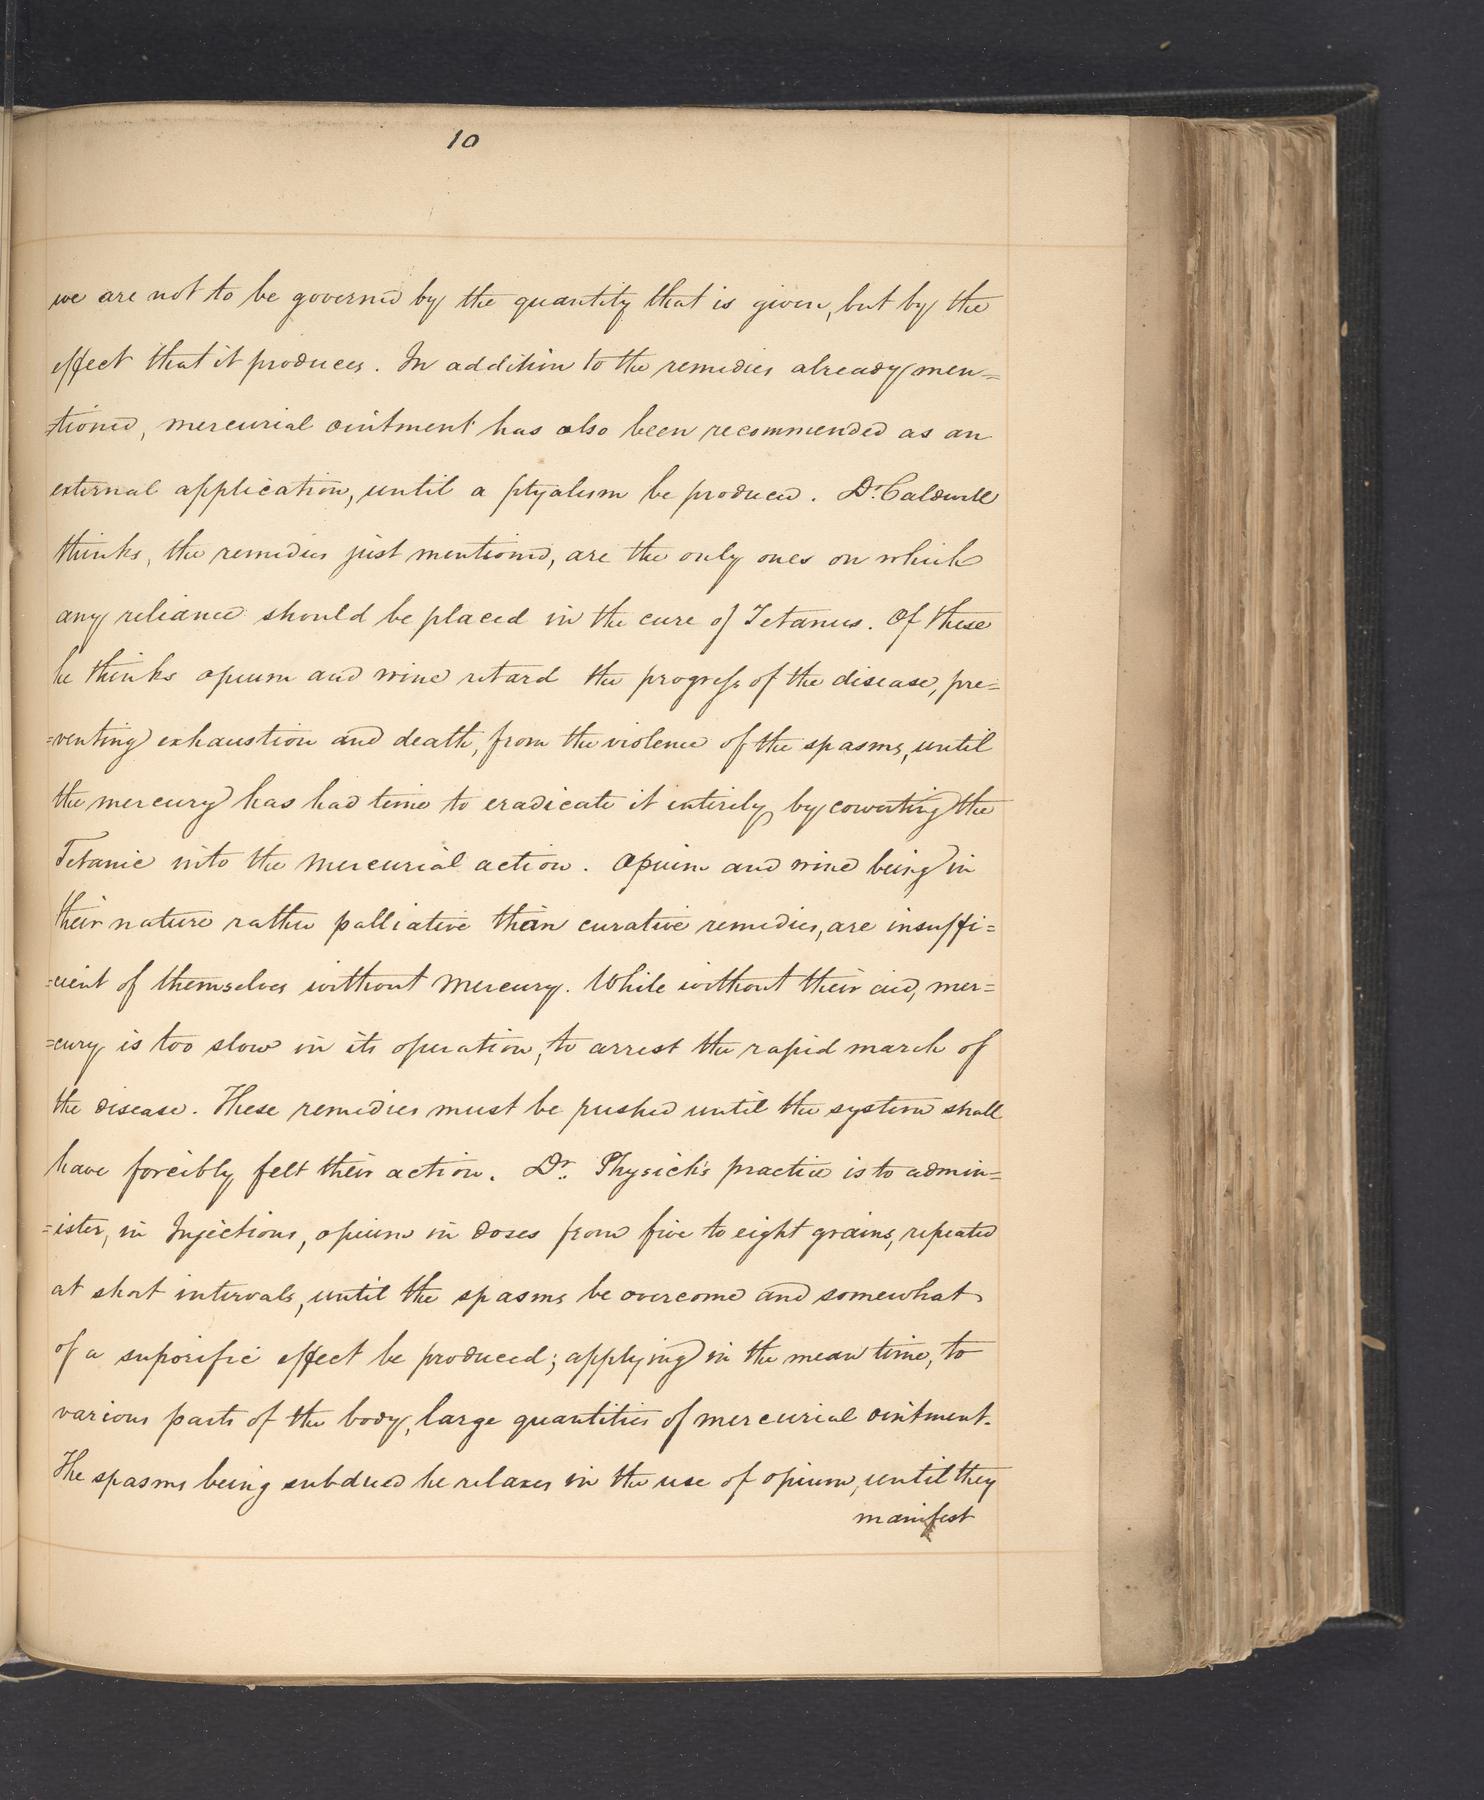 10
we are not to be governed by the quantity that is given, but by the
effect that it produces. In addition to the remedies already men=
=tioned, mercurial ointment has also been recommended as an
external application, until a ptyalism be produced. Dr. Caldwell
thinks, the remedies just mentioned, are the only ones on which
any reliance should be placed in the cure of Tetanus. Of these
he thinks opium and wine retard the progress of the disease, pre=
=venting exhaustion and death, from the violence of the spasms, until
the mercury has had time to eradicate it entirely, by coverting the
Tetanic into the Mercurial action. Opium and wine being in
their nature rather palliative than curative remedies, are insuffi=
=cient of themselves without Mercury. While without their aid, mer=
=cury is too slow in its operation, to arrest the rapid march of
the disease. These remedies must be pushed until the system shall
have forcibly felt their action. Dr. Physick's practice is to admin=
=ister, in Injections, opium in doses from five to eight grains, repeated
at short intervals, until the spasms be overcome and somewhat
of a suporific effect be produced; applying in the mean time, to
various parts of the body, large quantities of mercurial ointment.
The spasms being subdued he relaxes in the use of opium, until they
manifest